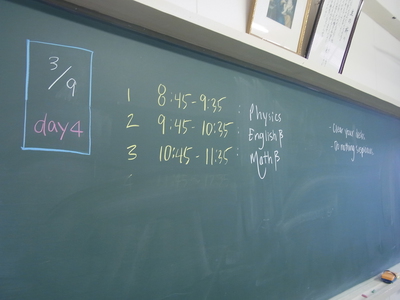 3/9
day4
1 8:45-9:35 : Physics
2 9:45-10:35 : English β
3 10:45-11:35 : Math β
- Clear your desks.
- Do nothing